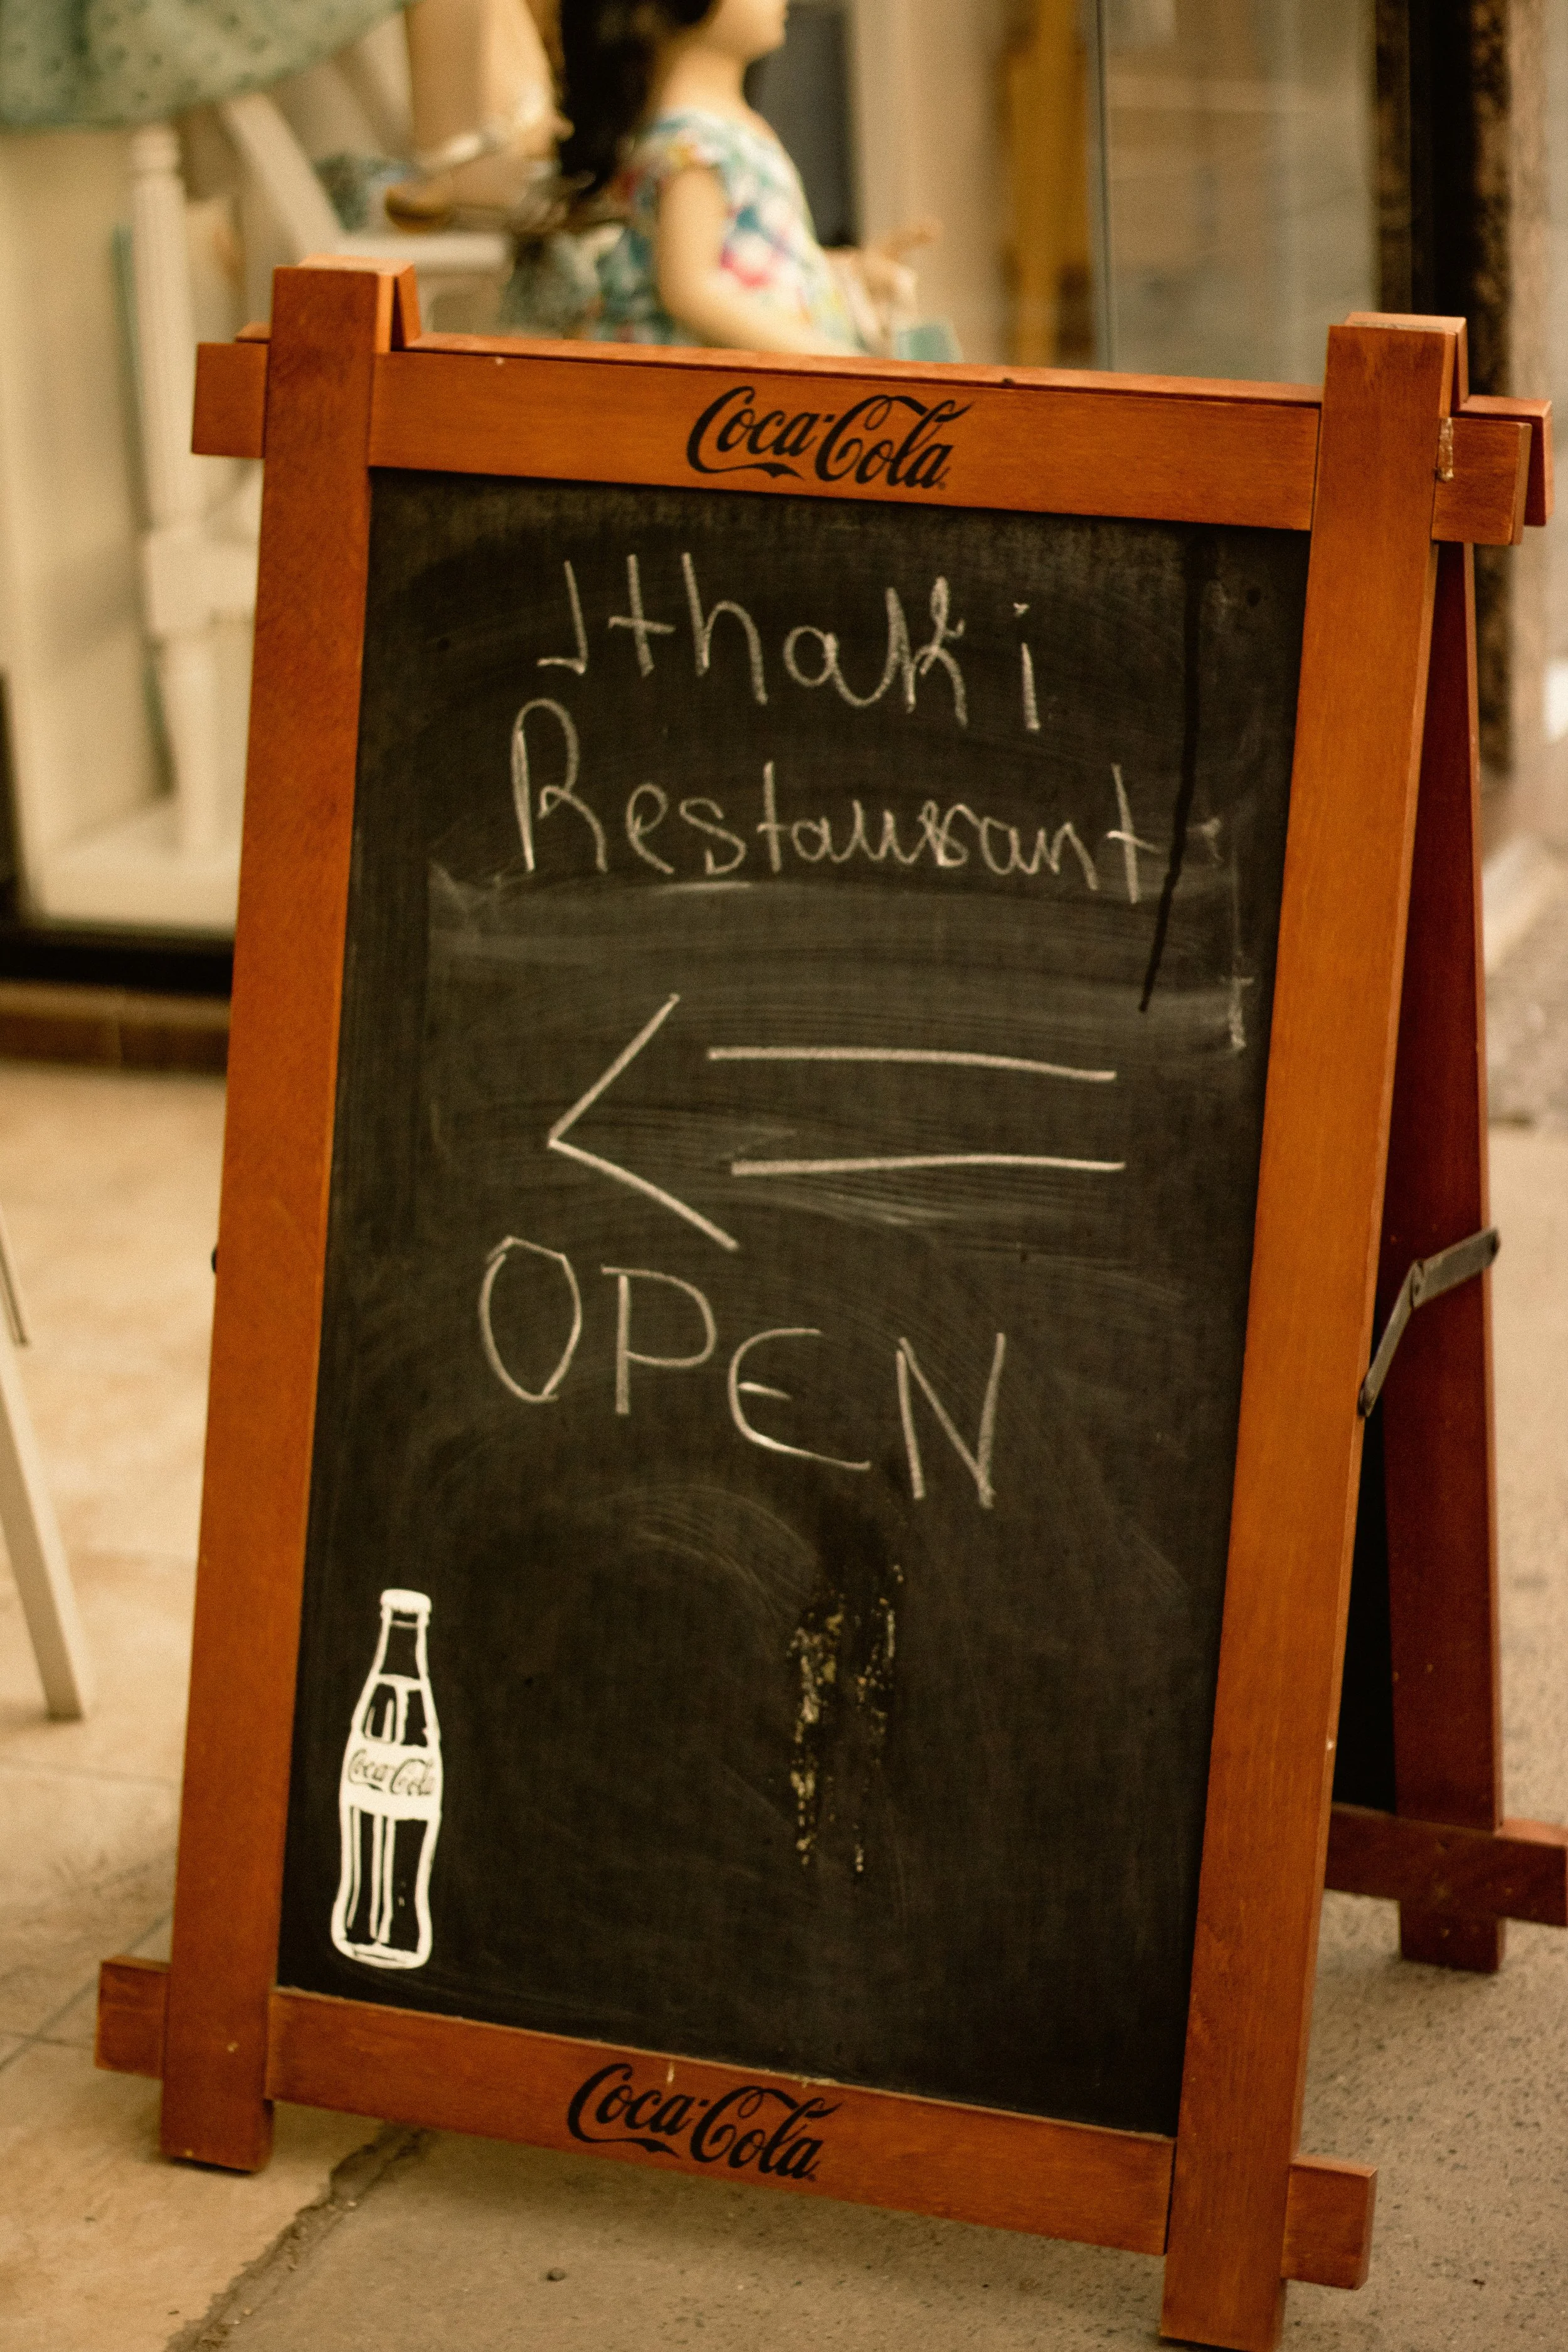 Coca-Cola
Ithaki
Restaurant
OPEN
Coca-Cola
Coca-Cola